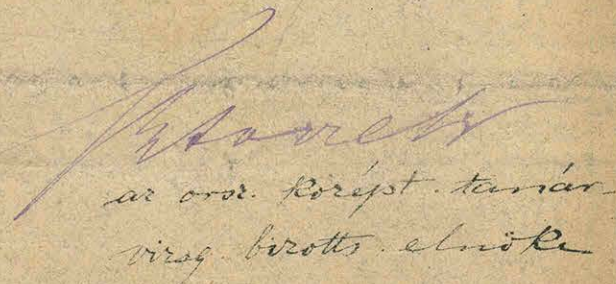 az orsz. középt. tanár-
vizsg. bizotts. elnöke